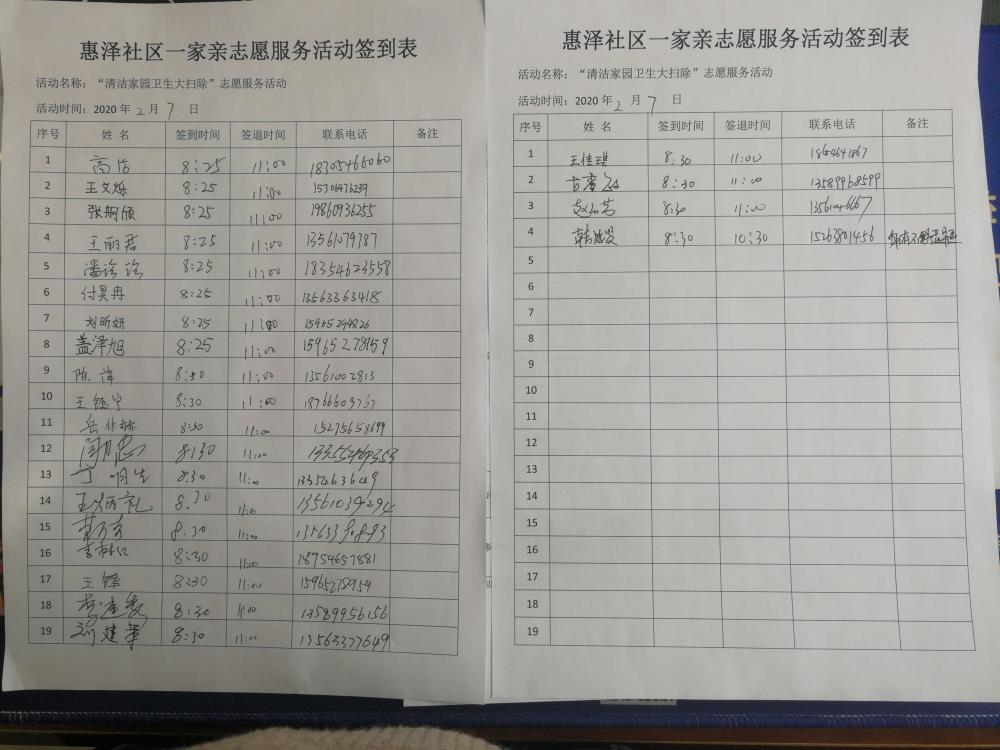 惠泽社区一家亲志愿服务活动签到表
活动名称：“清洁家园卫生大扫除”志愿服务活动
活动时间：2020 年 2 月 7 日
序号 姓 名 签到时间 签退时间 联系电话 备注
1 高洁 8:25 11:00 18305466060
2 王文烁 8:25 11:00 15306476239
3 张炯颀 8:25 11:00 19860936255
4 王丽君 8:25 11:00 13561079787
5 潘珍珍 8:25 11:00 18354623558
6 付昊冉 8:25 11:00 13563363418
7 刘昕妍 8:25 11:00 15965294826
8 盖泽旭 8:25 11:00 15965278959
9 陈 8:30 11:00 13561002813
10 王 宁 8:30 11:00 18766609767
11 岳 8:30 11:00 15275658699
12 8:30 11:00
13 丁明生 8:30 11:00
14 王 礼 8:30 11:00
15 8:30 11:00
16 李 8:30 11:00 18954657881
17 王 8:30 11:00 15965278959
18 李 8:30 11:00 13589956156
19 刘建军 8:30 11:00 13563377649
惠泽社区一家亲志愿服务活动签到表
活动名称：“清洁家园卫生大扫除”志愿服务活动
活动时间：2020 年 2 月 7 日
序号 姓 名 签到时间 签退时间 联系电话 备注
1 王佳琪 8:30 11:00
2 8:30 11:00 13589968599
3 赵 8:30 11:00
4 韩 8:30 10:30 15263801456
5
6
7
8
9
10
11
12
13
14
15
16
17
18
19